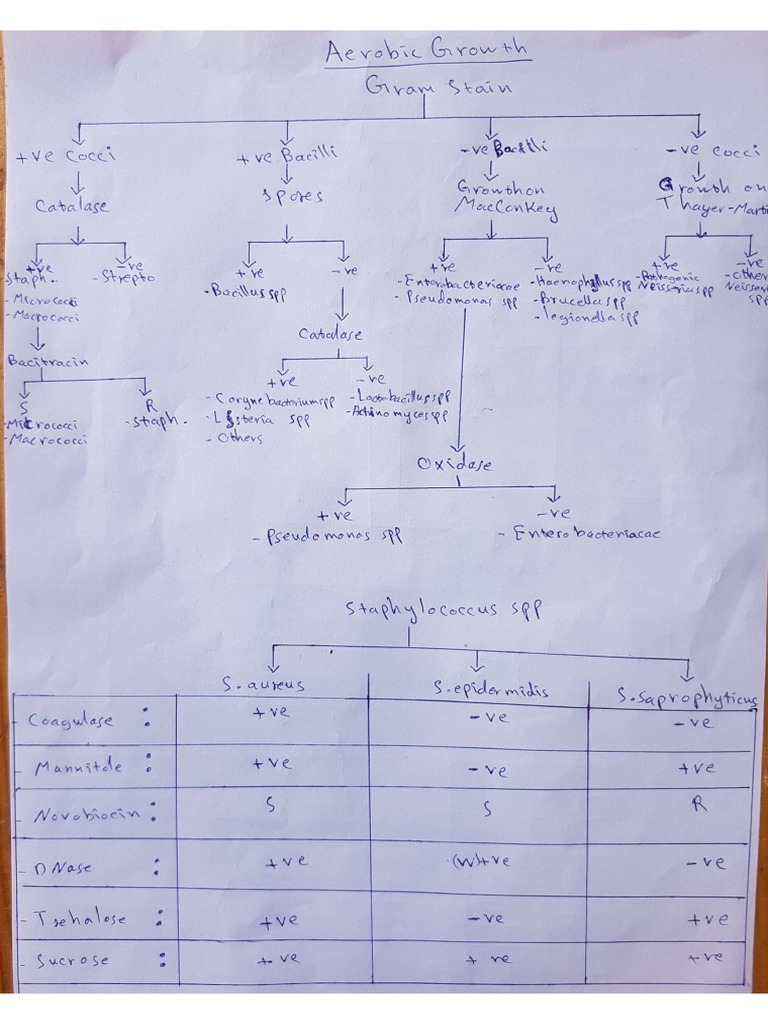 Aerobic Growth
Gram Stain
+ve cocci +ve Bacilli -ve Bacilli -ve cocci
Catalase Spores Growth on Growth on
MacConkey Thayer-Marti
+ve -ve +ve -ve +ve -ve +ve -ve
Staph. - Strepto - Bacillus spp - Enterobacteriacae - Haemophyllus spp - Pathogenic - Other
- Micrococci - Pseudomonas spp - Brucella spp Neisseria spp Neisser
- Macrococci - legionella spp spp
Catalase
Bacitracin
+ve -ve
S R - Corynebacterium spp - Lactobacillus spp
- Micrococci - Staph. - Listeria spp - Actinomyces spp
- Macrococci - Others
Oxidase
+ve -ve
- Pseudomonas spp - Enterobacteriacae
Staphylococcus spp
S. aureus S. epidermidis S. saprophyticus
- Coagulase : +ve -ve -ve
- Mannitole : +ve -ve +ve
- Novobiocin : S S R
- DNase : +ve (W)+ve -ve
- Trehalose : +ve -ve +ve
- Sucrose : +ve +ve +ve